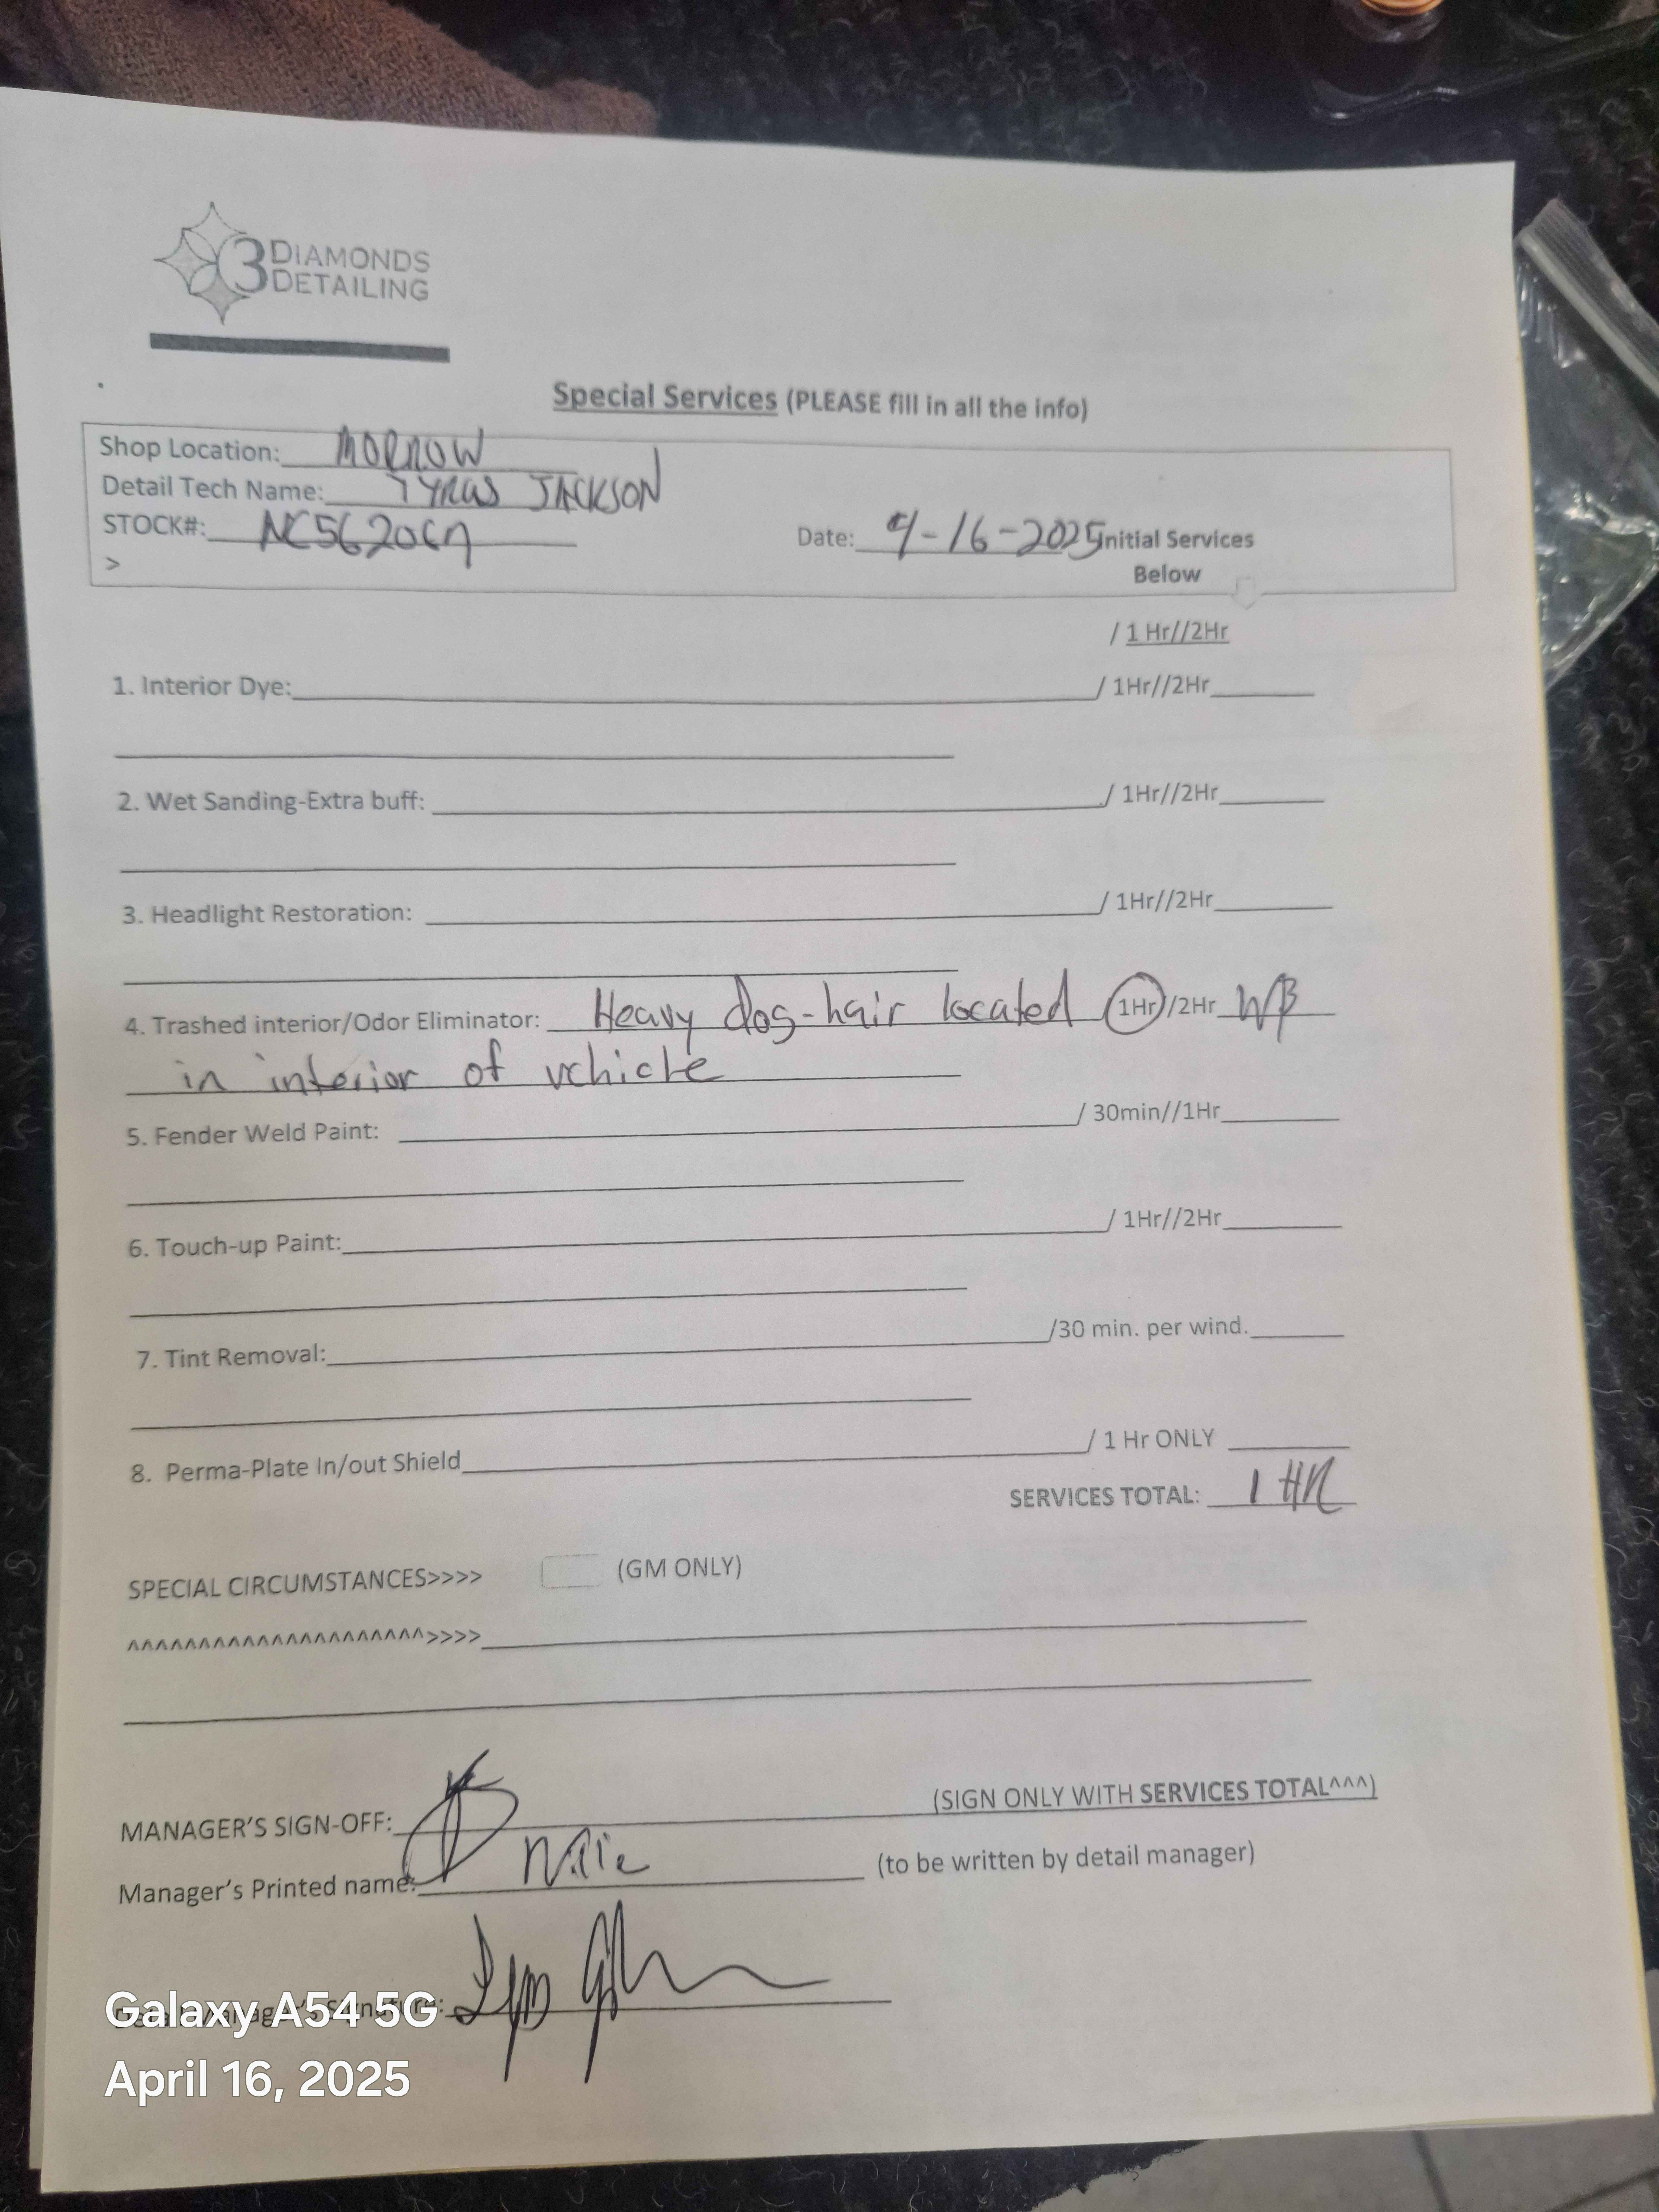 3 DIAMONDS
DETAILING
Special Services (PLEASE fill in all the info)
Shop Location: MORROW
Detail Tech Name: TYRUS JACKSON
STOCK#:
Date: 4-16-2025 Initial Services
>
Below
/ 1 Hr//2Hr
1. Interior Dye: / 1Hr//2Hr
2. Wet Sanding-Extra buff: / 1Hr//2Hr
3. Headlight Restoration: / 1Hr//2Hr
4. Trashed interior/Odor Eliminator: Heavy dog-hair located 1Hr/2Hr WB
in interior of vehicle
5. Fender Weld Paint: / 30min//1Hr
6. Touch-up Paint: / 1Hr//2Hr
7. Tint Removal: /30 min. per wind.
8. Perma-Plate In/out Shield / 1 Hr ONLY
SERVICES TOTAL: 1 HR
SPECIAL CIRCUMSTANCES>>>> (GM ONLY)
^^^^^^^^^^^^^^^^^^^^^>>>>
MANAGER'S SIGN-OFF: (SIGN ONLY WITH SERVICES TOTAL^^^)
Manager's Printed name: (to be written by detail manager)
Galaxy A54 5G
April 16, 2025